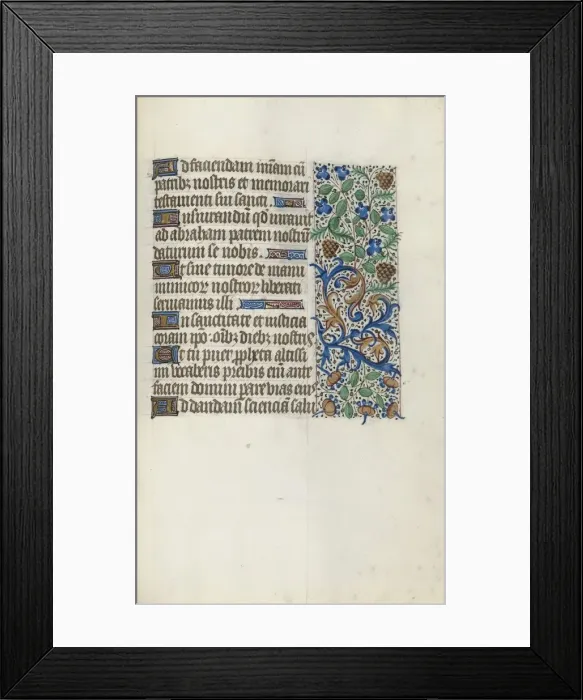 Ad faciendam miām cū
patribꝫ nostris et memorari
testamenti sui sancti.
Iusiurandum qd iurauit
ad abraham patrem nostrū
daturum se nobis.
Ut sine timore de manu
inimicoꝝ nostroꝝ liberati
seruiamus illi
In sanctitate et iusticia
coram ipō oībꝫ diebꝫ nostris
Et tu puer ꝓpheta altissi
mi vocaberis preibis enī ante
faciem domini parare vias eius
Ad dandam scienciā salu